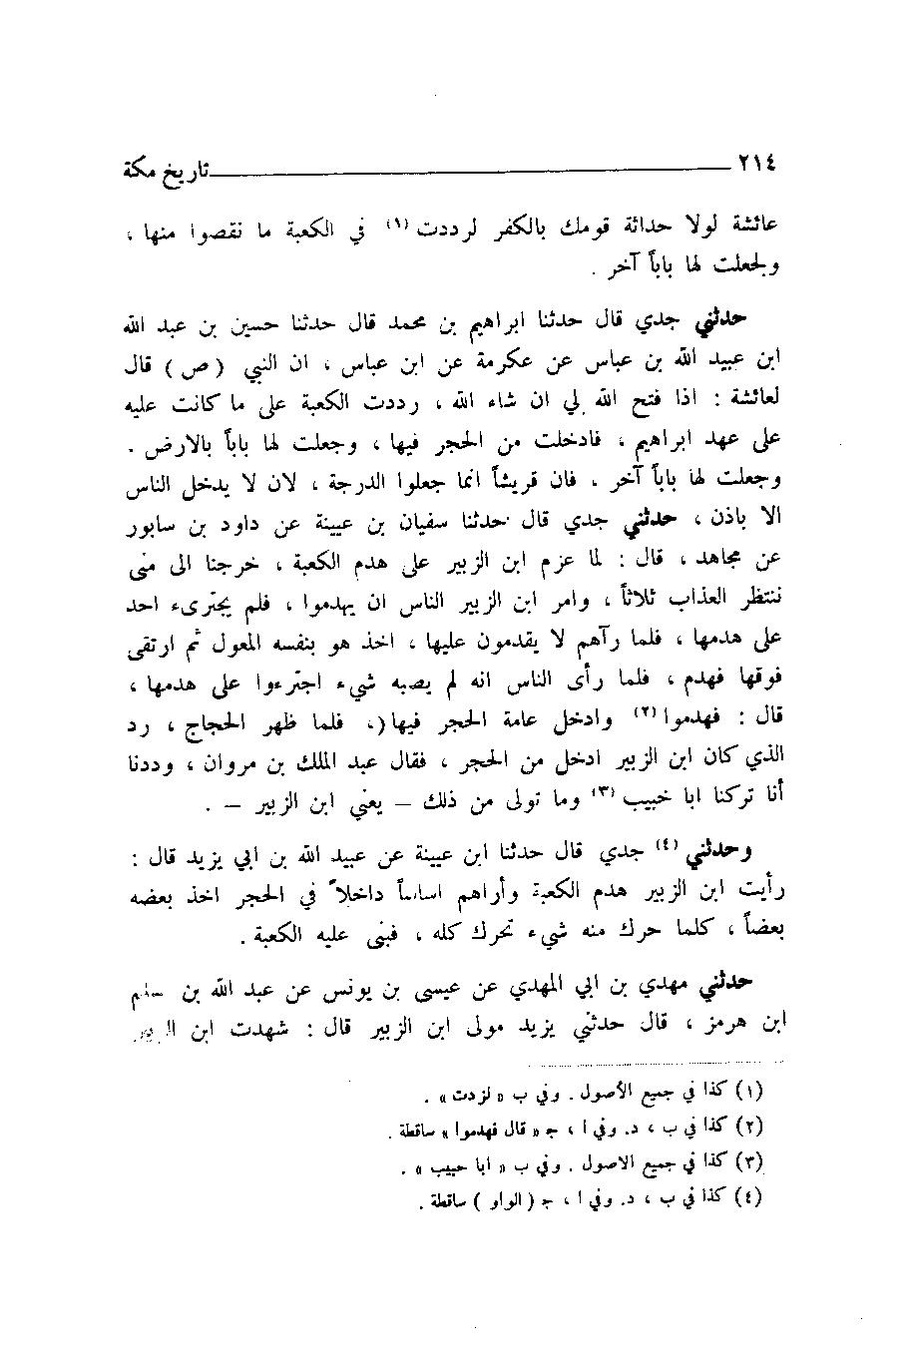 ٢١٤ تاريخ مكة
عائشة لولا حداثة قومك بالكفر لرددت (١) في الكعبة ما نقصوا منها ،
ولجعلت لها باباً آخر .
حدثني جدي قال حدثنا ابراهيم بن محمد قال حدثنا حسين بن عبد الله
ابن عبيد الله بن عباس عن عكرمة عن ابن عباس ، ان النبي ( ص ) قال
لعائشة : اذا فتح الله لي ان شاء الله ، رددت الكعبة على ما كانت عليه
على عهد ابراهيم ، فادخلت من الحجر فيها ، وجعلت لها باباً بالارض .
وجعلت لها باباً آخر . فان قريشاً انما جعلوا الدرجة ، لان لا يدخل الناس
الا باذن ، حدثني جدي قال حدثنا سفيان بن عيينة عن داود بن سابور
عن مجاهد ، قال : لما عزم ابن الزبير على هدم الكعبة ، خرجنا الى منى
ننتظر العذاب ثلاثاً ، وامر ابن الزبير الناس ان يهدموا ، فلم يجترىء احد
على هدمها ، فلما رآهم لا يقدمون عليها ، اخذ هو بنفسه المعول ثم ارتقى
فوقها فهدم ، فلما رأى الناس انه لم يصبه شيء اجترءوا على هدمها ،
قال : فهدموا (٢) وادخل عامة الحجر فيها(، فلما ظهر الحجاج ، رد
الذي كان ابن الزبير ادخل من الحجر ، فقال عبد الملك بن مروان ، وددنا
أنا تركنا ابا خبيب (٣) وما تولى من ذلك – يعني ابن الزبير – .
وحدثني (٤) جدي قال حدثنا ابن عيينة عن عبيد الله بن ابي يزيد قال :
رأيت ابن الزبير هدم الكعبة وأراهم اساساً داخلاً في الحجر اخذ بعضه
بعضاً ، كلما حرك منه شيء تحرك كله ، فبنى عليه الكعبة .
حدثني مهدي بن ابي المهدي عن عيسى بن يونس عن عبد الله بن مسلم
ابن هرمز ، قال حدثني يزيد مولى ابن الزبير قال : شهدت ابن الزبير
(١) كذا في جميع الأصول . وفي ب « لزدت » .
(٢) كذا في ب ، د. وفي ا ، ج « قال فهدموا » ساقطة .
(٣) كذا في جميع الاصول . وفي ب « ابا حبيب » .
(٤) كذا في ب ، د. وفي ا ، ج ( الواو ) ساقطة .